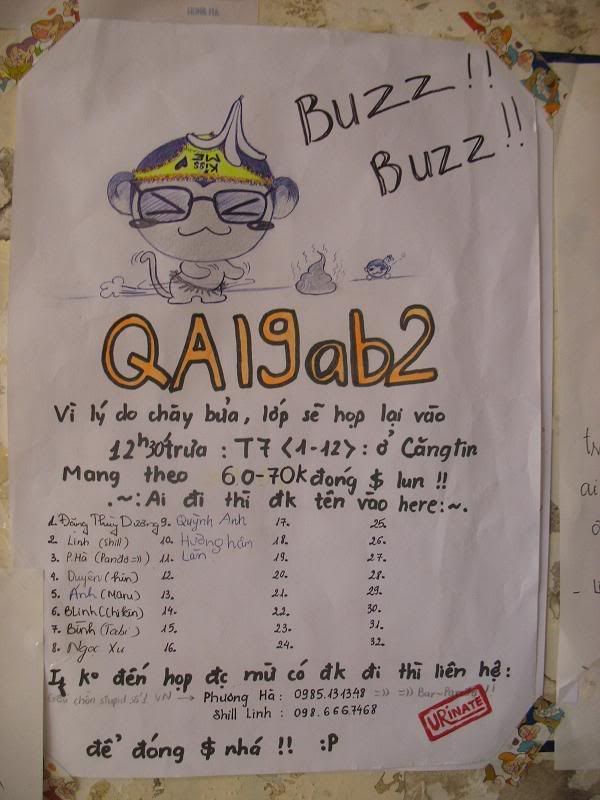 BUZZ!!
BUZZ!!
KISS ME
QA19ab2
Vì lý do chãy bửa, lớp sẽ họp lại vào
12h30 trưa : T7 <1-12> : ở Căngtin
Mang theo 60-70k đóng $ lun !!
.~: Ai đi thì đk tên vào here :~.
1. Đặng Thùy Dương 9. Quỳnh Anh 17. 25.
2. Linh (Shill) 10. Hường hân 18. 26.
3. P.Hà (Panda =)) 11. Lan 19. 27.
4. Duyên (hin) 12. 20. 28.
5. Ánh (Maru) 13. 21. 29.
6. BLinh (Chikan) 14. 22. 30.
7. Bình (Tabi) 15. 23. 31.
8. Ngọc Xu 16. 24. 32.
If ko đến họp đc mừ có đk đi thì liên hệ:
Gấu chán stupid số 1 VN → Phương Hà : 0985.134348 =)) =)) Bar~Panda !!
Shill Linh : 098.666.7468
URINATE
để đóng $ nhá !! :P